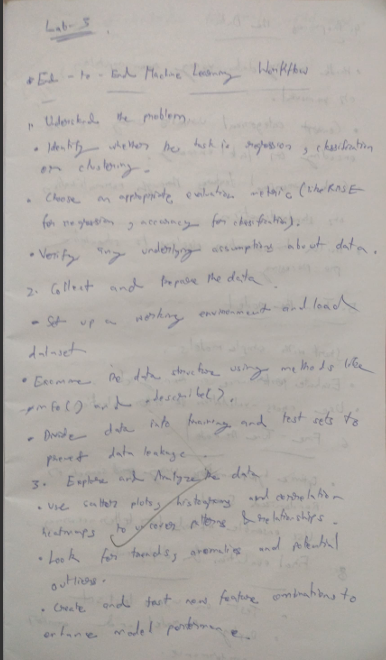 * End - to - End Machine Learning Workflow
1. Understand the problem
• Identify whether the task is regression, classification
or clustering.
• Choose an appropriate evaluation metric (like RMSE
for regression, accuracy for classification).
• Verify any underlying assumptions about data.
2. Collect and Prepare the data.
• Set up a working environment and load
dataset
• Examine the data structure using methods like
.info() and .describe().
• Divide data into training and test sets to
prevent data leakage.
3. Explore and Analyze the data
• Use scatter plots, histograms and correlation
heatmaps to uncover patterns & relationships.
• Look for trends, anomalies and potential
outliers.
• Create and test new feature combinations to
enhance model performance.